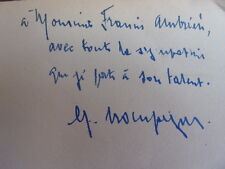 à Monsieur Francis Ambrière,
avec toute la sympathie
que j'ai porté à son talent.